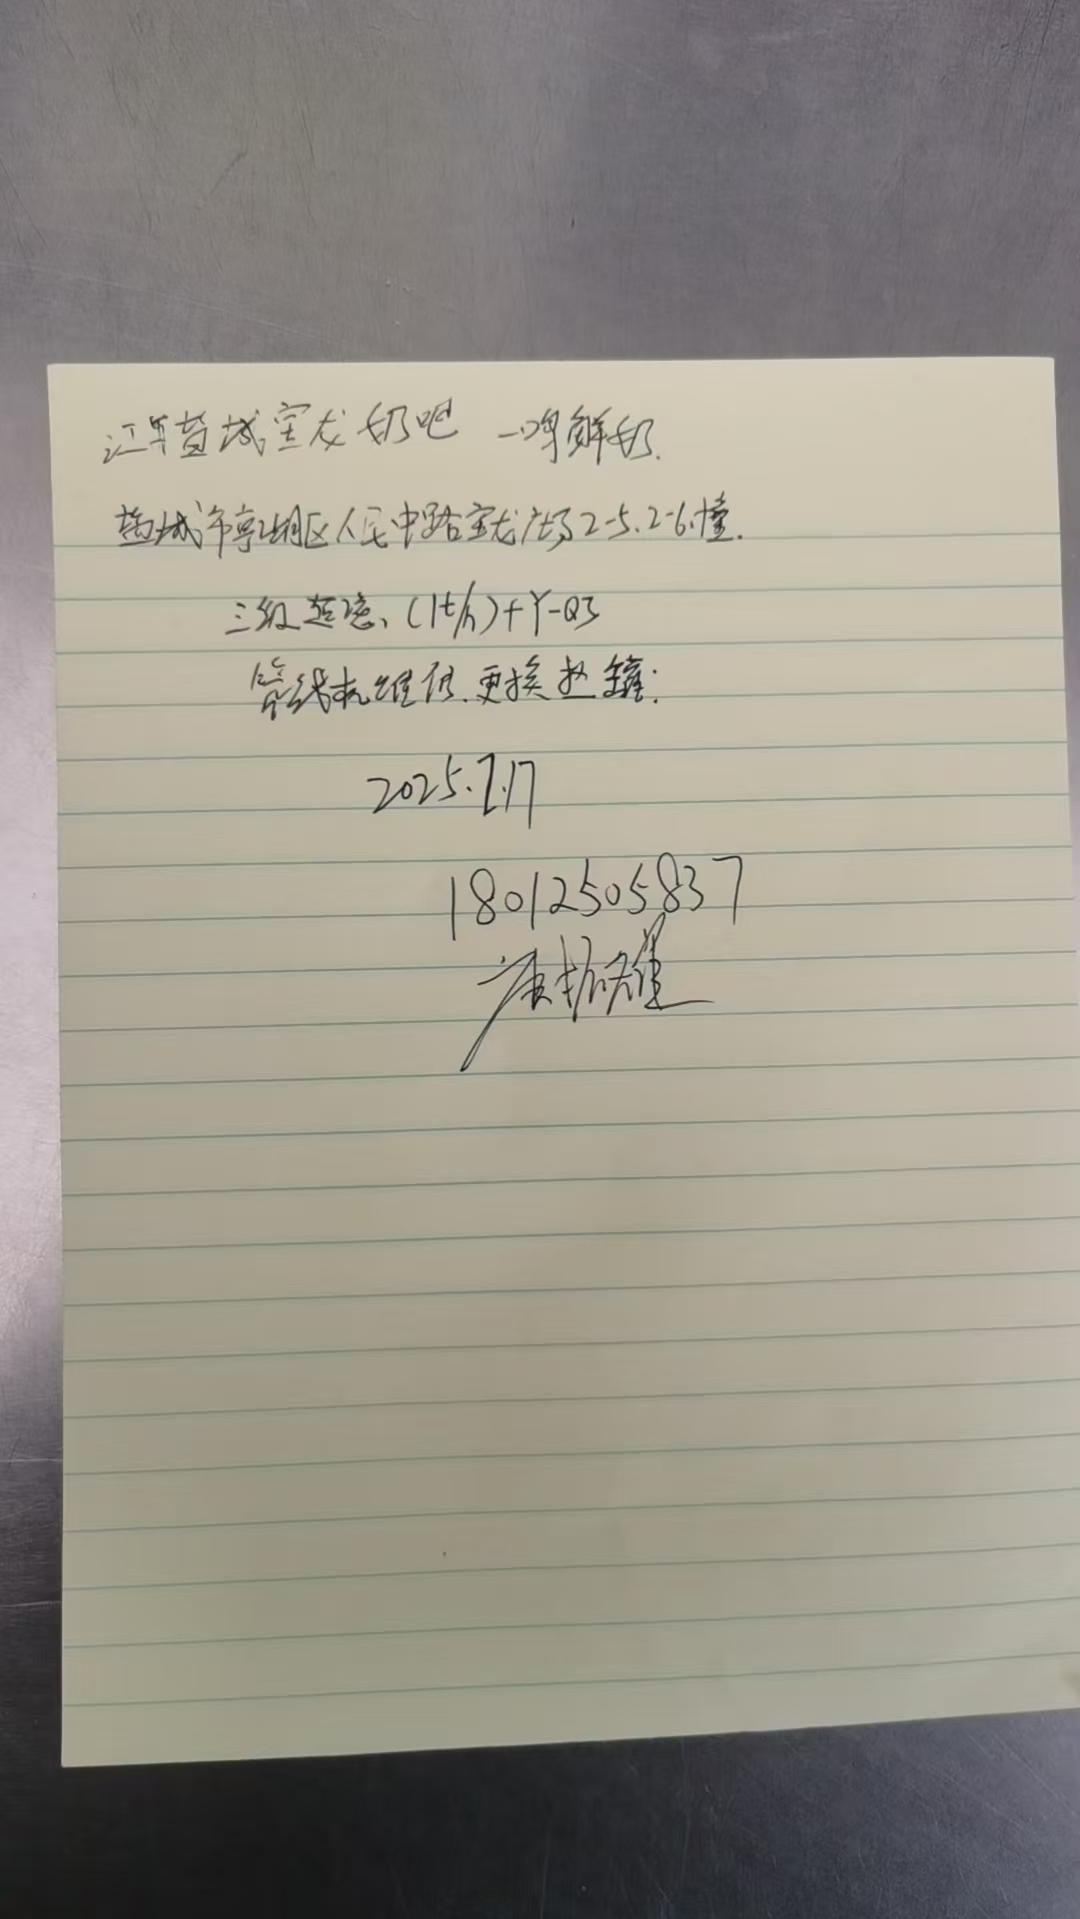 江苏盐城宝龙奶吧 一鸣鲜奶.
盐城市亭湖区人民中路宝龙广场2-5.2-6幢.
三级过滤、(1t/h)+Y-Q3
管线机维保.更换
2025.7.17
18012505837